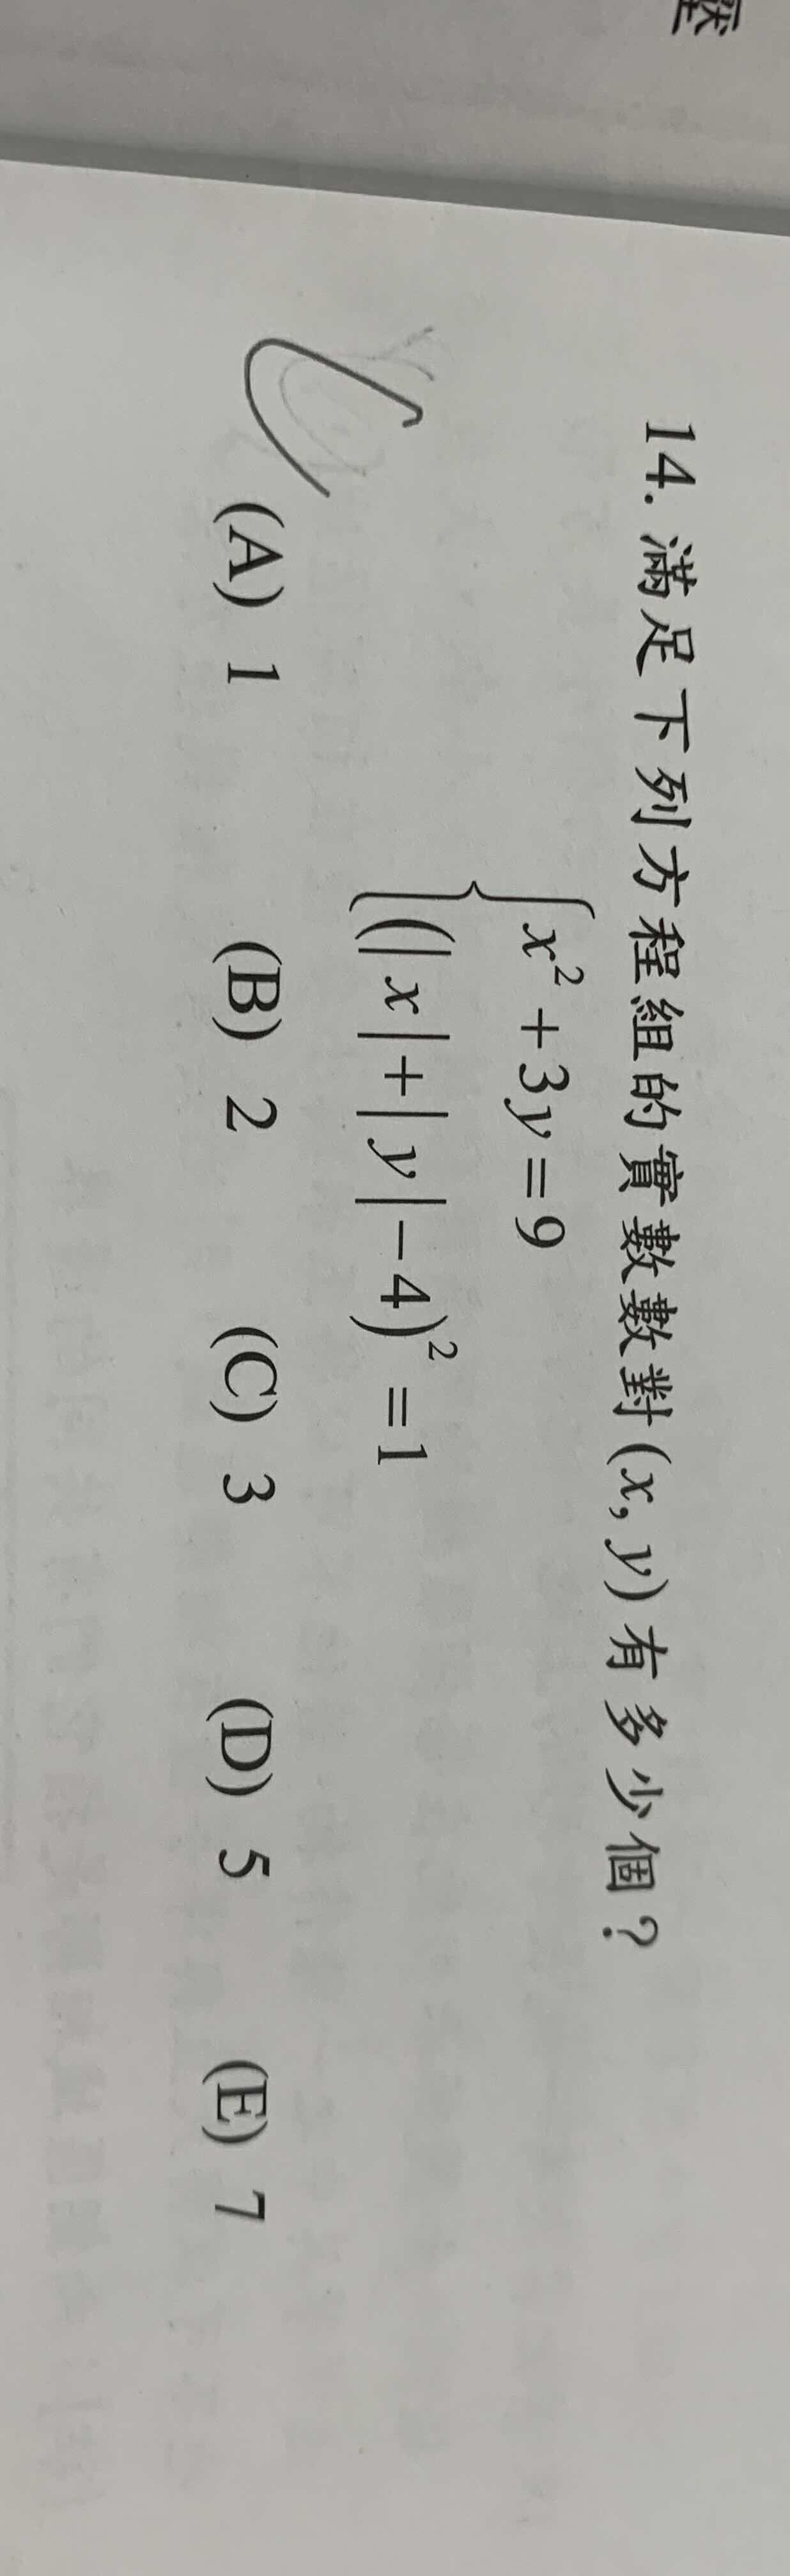 14. 滿足下列方程組的實數數對(x, y)有多少個？
x² + 3y = 9
(|x|+|y|−4)² = 1
(A) 1 (B) 2 (C) 3 (D) 5 (E) 7